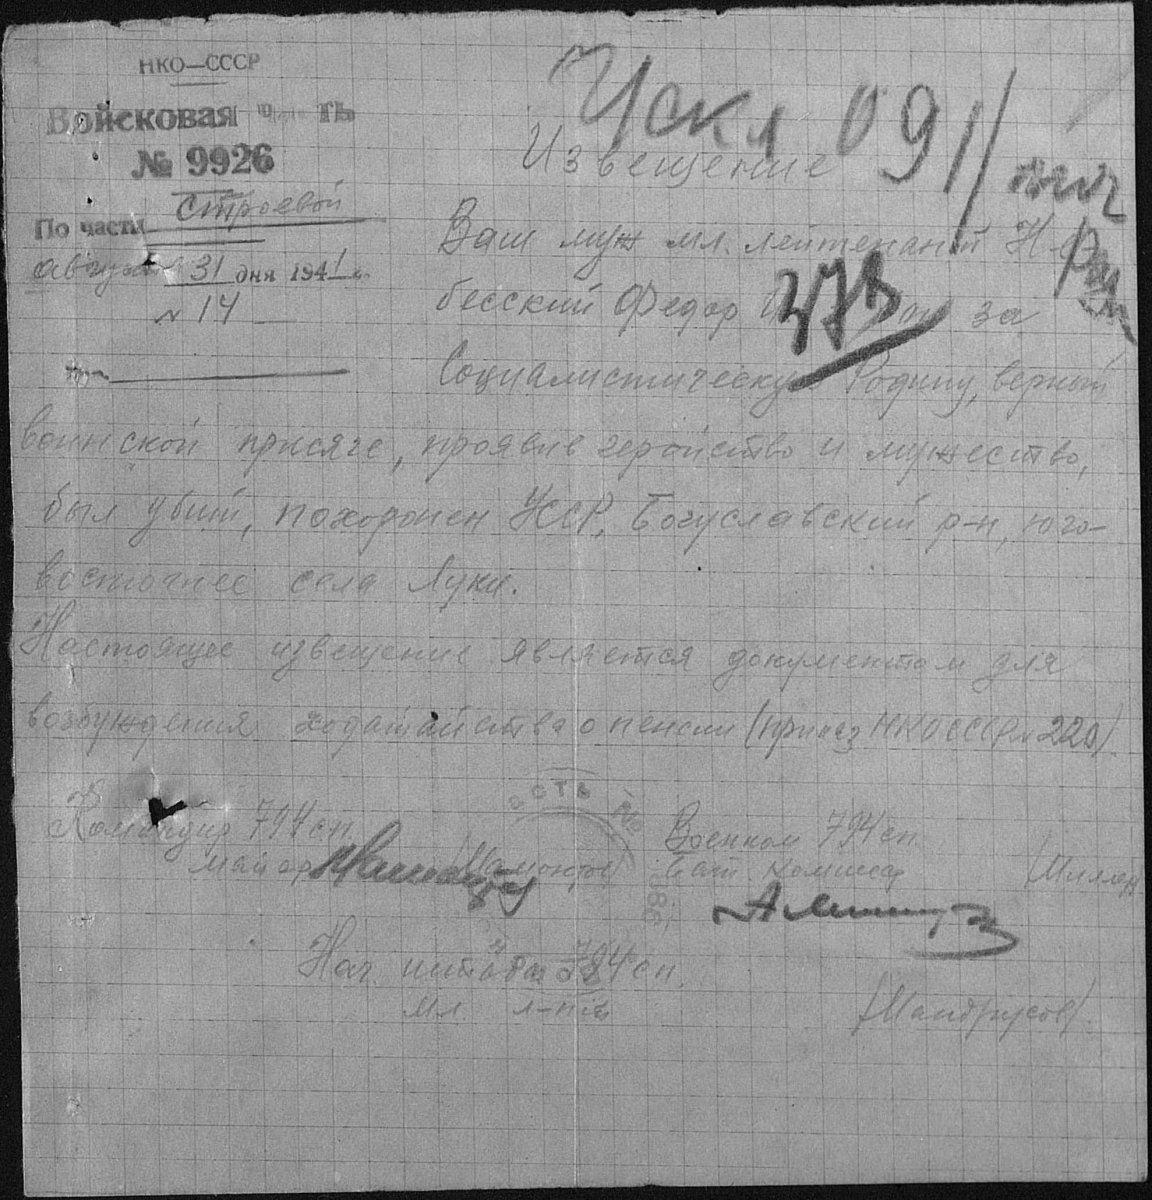 НКО—СССР
Войсковая часть
№ 9926
По части строевой
августа 31 дня 1941 г.
№ 14
Искл 09
Извещение
Ваш муж мл. лейтенант
бесский Федор за
Социалистическую Родину, верный
воинской присяге, проявив геройство и мужество,
был убит, похоронен УССР, Богуславский р-н, юго-
восточнее села Луки.
Настоящее извещение является документом для
возбуждения ходатайства о пенсии (приказ НКО СССР № 220).
Командир 794 сп. Военком 794 сп.
майор /Мамонтов/ бат. комиссар /Миллер/
Нач. штаба 794 сп.
мл. л-нт